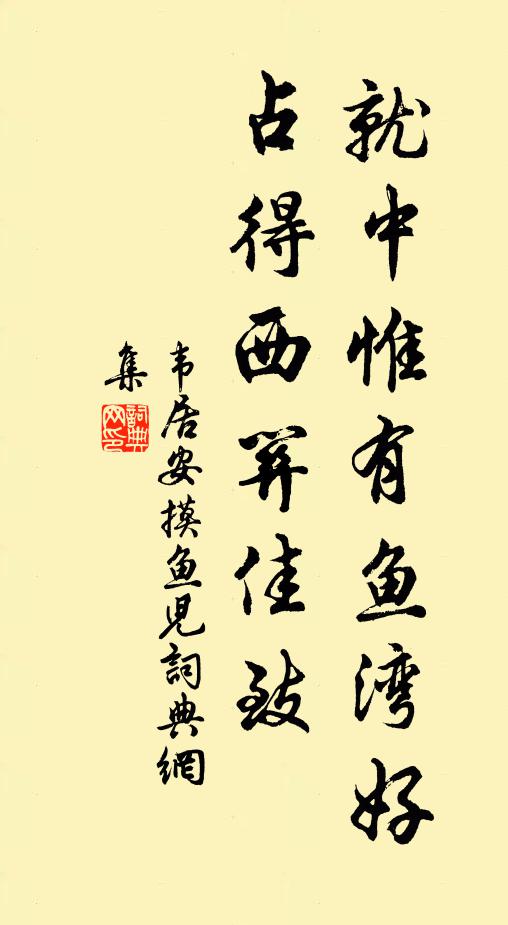 就中惟有鱼湾好
占得西關佳致
韦居安摸鱼儿詞典網
集
詞典网印